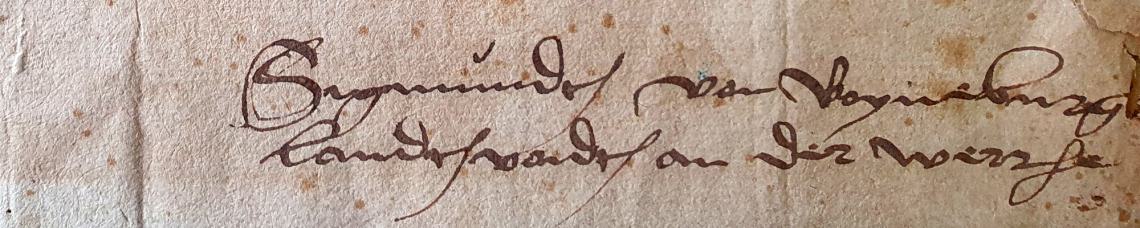 Sigmundt von Boyneburgk
Landtvoidt an der Werrhe